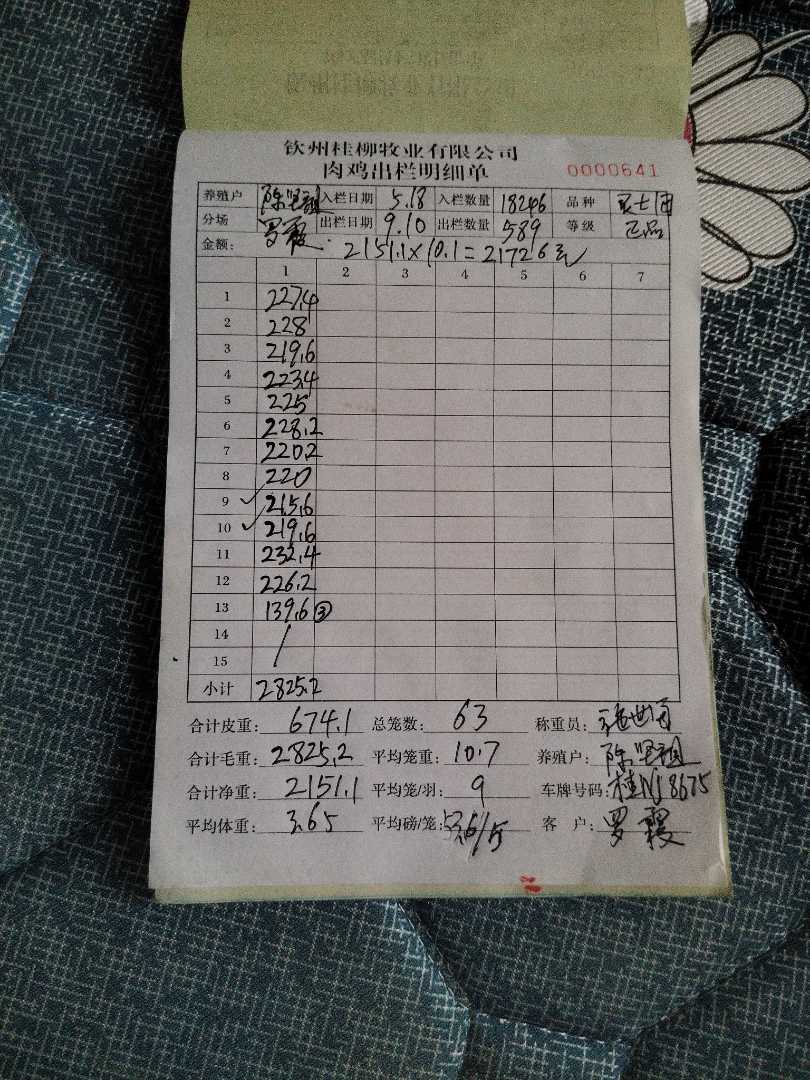 钦州桂柳牧业有限公司
肉鸡出栏明细单 0000641
养殖户 陈坚祖 入栏日期 5.18 入栏数量 18246 品种
分场 罗霞 出栏日期 9.10 出栏数量 589 等级 正品
金额: 2151.1×10.1=21726元
1 2 3 4 5 6 7
1 227.4
2 228
3 219.6
4 223.4
5 225
6 228.2
7 220.2
8 220
9 ✓ 215.6
10 ✓ 219.6
11 232.4
12 226.2
13 139.6 ③
14 /
15
小计 2825.2
合计皮重: 674.1 总笼数: 63 称重员:
合计毛重: 2825.2 平均笼重: 10.7 养殖户: 陈坚祖
合计净重: 2151.1 平均笼/羽: 9 车牌号码: 桂NJ8675
平均体重: 3.65 平均磅/笼: 53.6/5 客 户: 罗霞